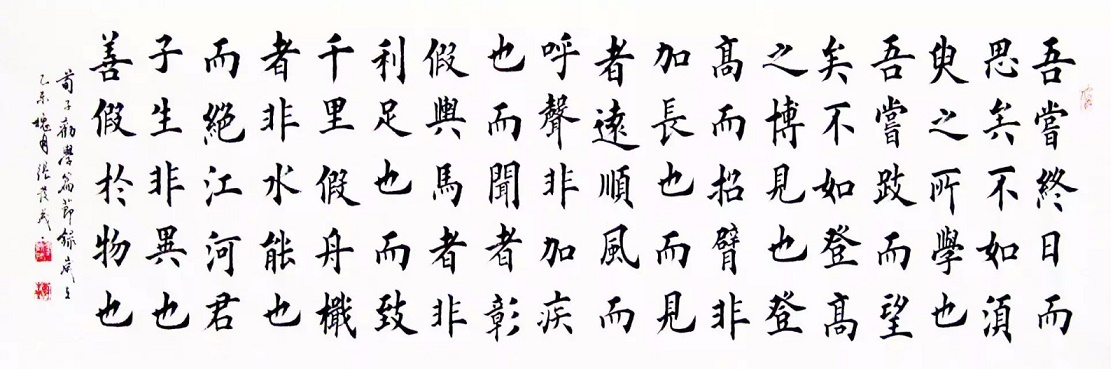 吾嘗終日而
思矣不如須
臾之所學也
吾嘗跂而望
矣不如登髙
之博見也登
髙而招臂非
加長也而見
者遠順風而
呼聲非加疾
也而聞者彰
假輿馬者非
利足也而致
千里假舟檝
者非水能也
而絕江河君
子生非異也
善假於物也
荀子勸學篇節錄歲
乙未 月張